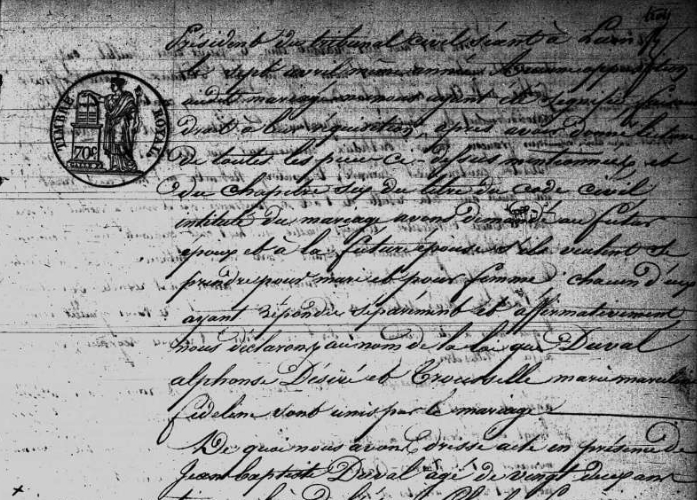 Président du tribunal civil séant à
le sept avril même année Aucune opposition
audit mariage ne nous ayant été signifié faisant
droit à leur réquisition, après avoir donné lecture
De toutes les pieces ci-dessus mentionnées, et
du chapitre six du titre du code civil
intitulé du mariage avons demandé au futur
epoux et à la future epouse s'ils veulent se
prendre pour mari et pour femme, chacun d'eux
ayant répondu séparément et affirmativement
nous déclarons au nom de la loi que Duval
alphonse Désiré et marie
fideline sont unis par le mariage
De quoi nous avons dressé acte en présence de
Jean baptiste Duval agé de vingt deux ans
TIMBRE ROYAL
70c